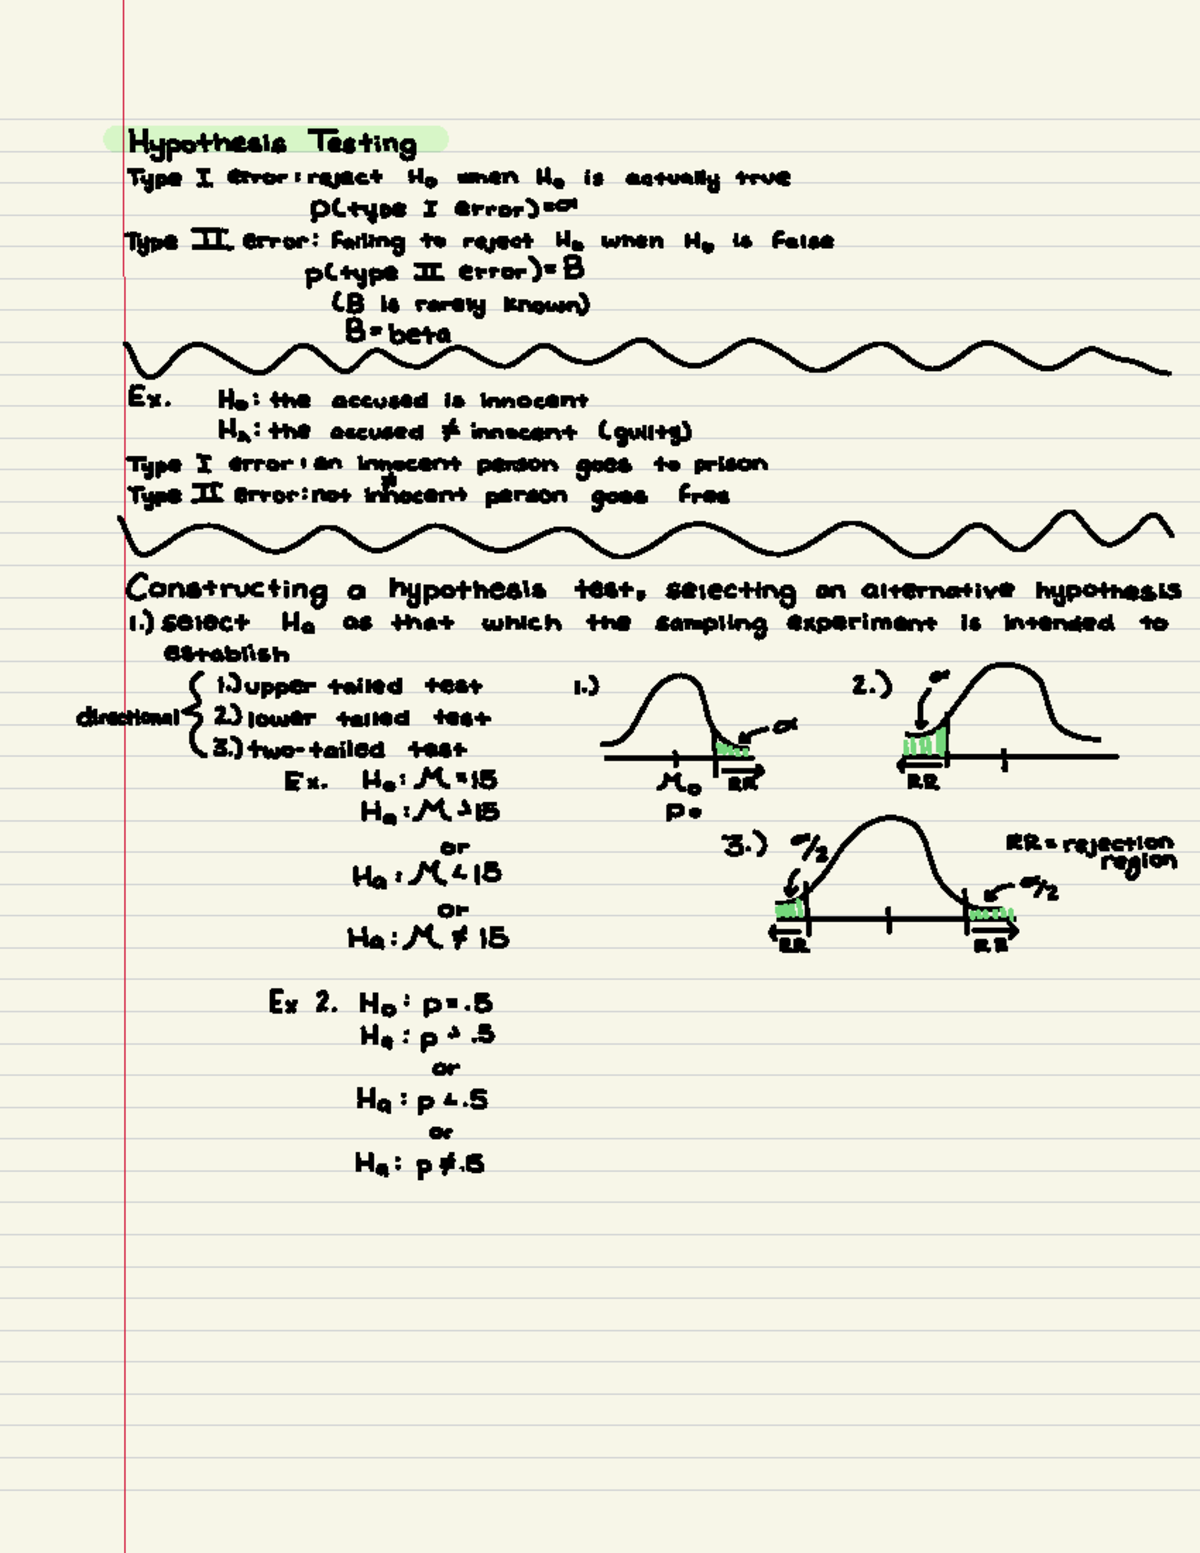 Hypothesis Testing
Type I error: reject H₀ when H₀ is actually true
p(type I error)=α
Type II error: failing to reject H₀ when H₀ is false
p(type II error)=B
(B is rarely known)
B=beta
Ex. H₀: the accused is innocent
Hₐ: the accused ≠ innocent (guilty)
Type I error: an innocent person goes to prison
Type II error: not innocent person goes free
≠
Constructing a hypothesis test, selecting an alternative hypothesis
1.) select Hₐ as that which the sampling experiment is intended to
establish
directional
1.) upper tailed test
2.) lower tailed test
3.) two-tailed test
Ex. H₀: M = 15
Hₐ: M > 15
or
Hₐ: M < 15
or
Hₐ: M ≠ 15
Ex 2. H₀: p = .5
Hₐ: p > .5
or
Hₐ: p < .5
or
Hₐ: p ≠ .5
1.)
α
M₀ RR
p₀
2.) α
RR
3.) α/2
RR = rejection
region
α/2
RR RR